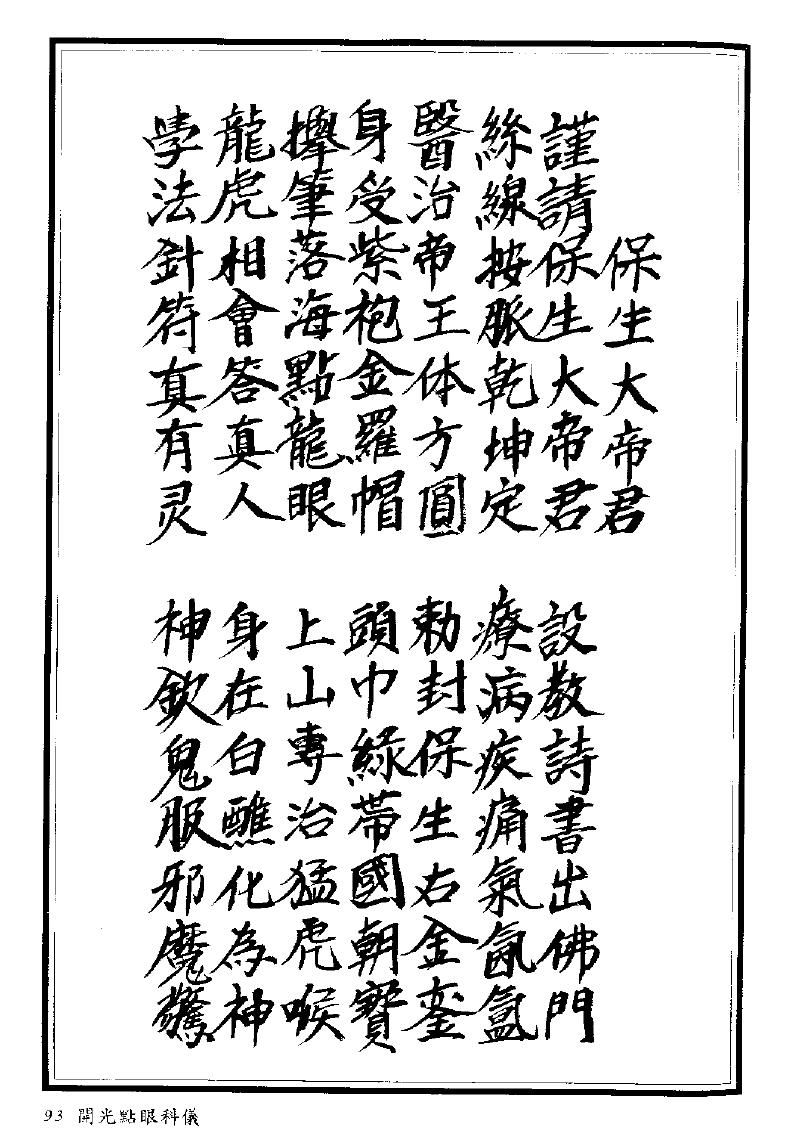 保生大帝君
謹請保生大帝君　設教詩書出佛門
絲線按脈乾坤定　療病疾痛氣氤氳
醫治帝王体方圓　勅封保生右金鑾
身受紫袍金羅帽　頭巾綠帶國朝寶
擧筆落海點龍眼　上山專治猛虎喉
龍虎相會答真人　身在白醮化為神
學法針符真有灵　神欽鬼服邪魔驚
93 開光點眼科儀